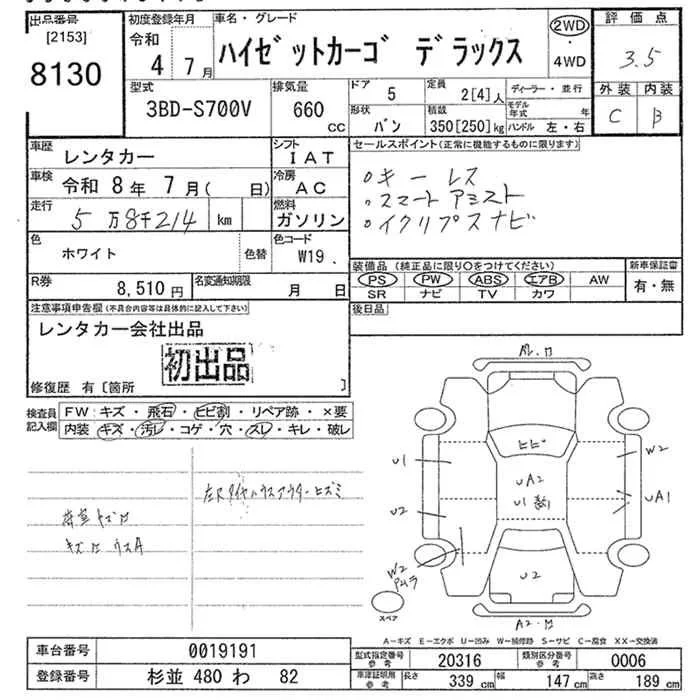 出品番号
[2153]
8130
初度登録年月
令和
4 7月
車名・グレード
ハイゼットカーゴ デラックス
2WD
・
4WD
評価点
3.5
外装 内装
C B
型式
3BD-S700V
排気量
660
CC
ドア
5
定員
2[4]人
形状
バン
積載
350[250]kg
ディーラー・並行
モデル年式 年
ハンドル 左・右
車歴
レンタカー
シフト
IAT
車検
令和 8年 7月( 日)
冷房
AC
走行
5万8千214 km
燃料
ガソリン
色
ホワイト
色替
色コード
W19
R券
8,510円
名変通知期限
月 日
セールスポイント(正常に機能するものに限ります)
・キーレス
・スマートアシスト
・イクリプスナビ
装備品 (純正品に限り○をつけてください)
PS PW ABS エアB AW
SR ナビ TV カワ
新車保証書
有・無
後日品
注意事項申告欄(不具合内容等は具体的に記入して下さい)
レンタカー会社出品
初出品
修復歴 有〔箇所 〕
検査員記入欄
FW:キズ・飛石・ヒビ割・リペア跡・×要
内装:キズ・汚レ・コゲ・穴・スレ・キレ・破レ
左Rタイヤハウスアウターヒズミ
荷室キズ
ヒビ
U1
U2
W2
UA2
U1
W2
UA1
U2
スペア
A-キズ E-エクボ U-凹み W-補修跡 S-サビ C-腐食 XX-交換済
車台番号
0019191
登録番号
杉並 480 わ 82
型式指定番号
参考
20316
類別区分番号
参考
0006
車庫証明用
参考
長さ 339 cm
幅 147 cm
高さ 189 cm